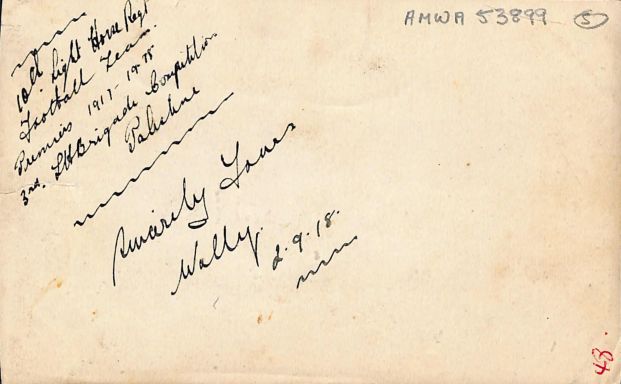 AMWA 53899 5
10th Light Horse Regt
Football Team.
Premiers 1917-1918
3rd. LH Brigade Competition
Palestine
Sincerely Yours
Wally.
2.9.18.
48.